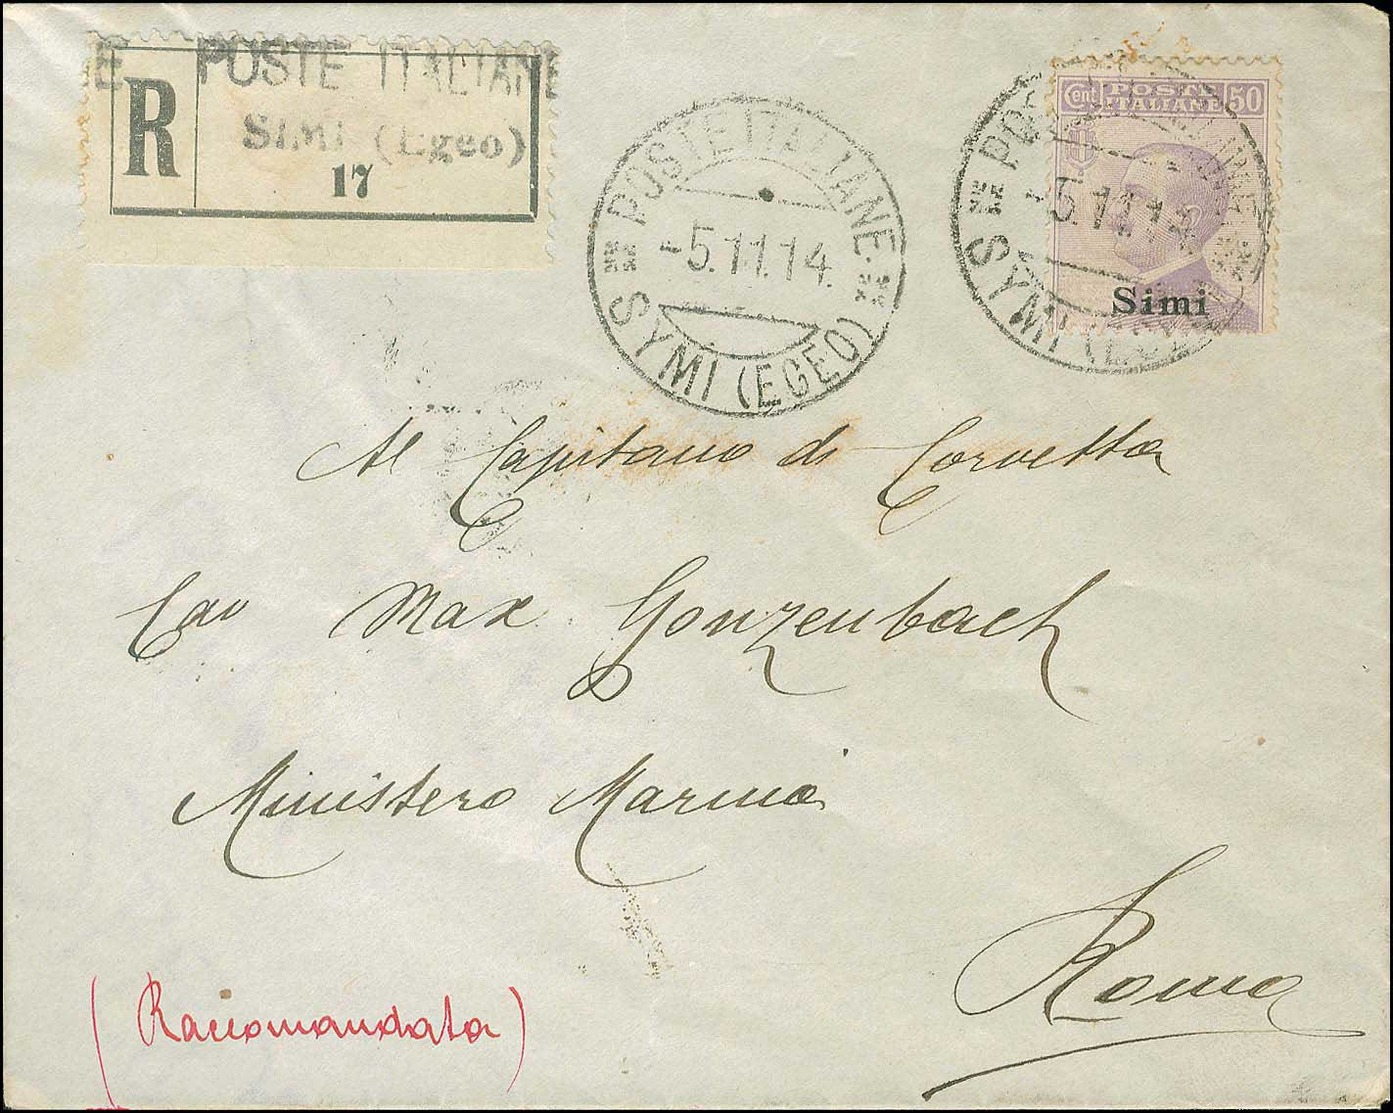 E POSTE ITALIANE
R
Simi (Egeo)
17
POSTE ITALIANE
-5.11.14.
SYMI (EGEO)
Cent POSTE ITALIANE 50
-5.11.14
SYMI
Simi
Al Capitano di Corvetta
Cav Max Gonzenbach
Ministero Marina
Roma
(Raccomandata)